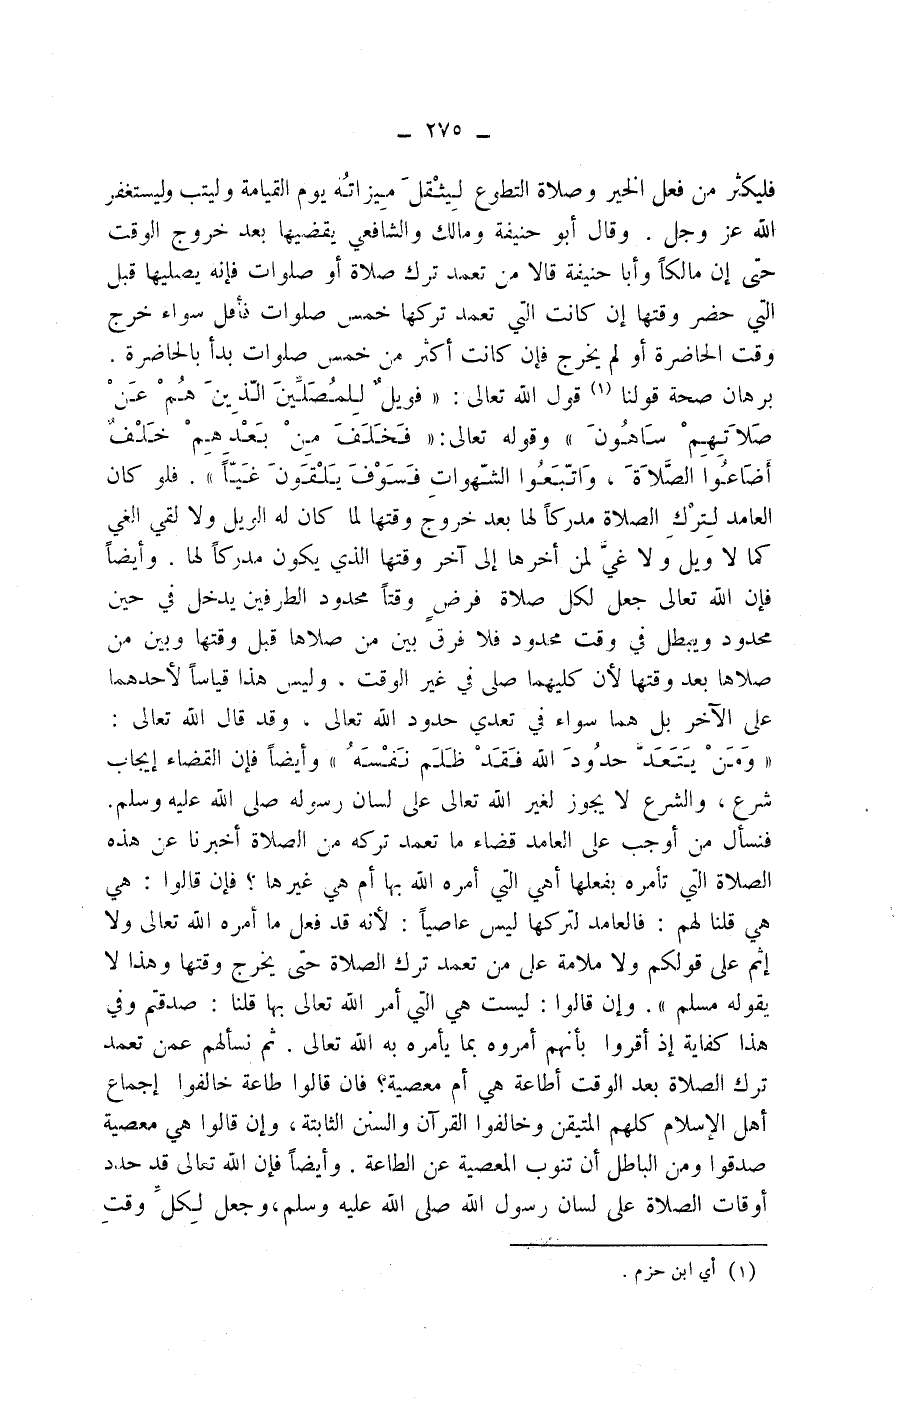 ـ ٢٧٥ ـ
فليكثر من فعل الخير وصلاة التطوع لِيثْقلَ مِيزاتُه يوم القيامة وليتب وليستغفر
الله عز وجل . وقال أبو حنيفة ومالك والشافعي يقضيها بعد خروج الوقت
حتى إن مالكاً وأبا حنيفة قالا من تعمد ترك صلاة أو صلوات فإنه يصليها قبل
التي حضر وقتها إن كانت التي تعمد تركها خمس صلوات فأقل سواء خرج
وقت الحاضرة أو لم يخرج فإن كانت أكثر من خمس صلوات بدأ بالحاضرة .
برهان صحة قولنا (١) قول الله تعالى : « فويلٌ لِلمُصَلِّينَ الّذِينَ هُمْ عَنْ
صَلاَتِهِمْ سَاهُونَ » وقوله تعالى:« فَخَلَفَ مِنْ بَعْدِهِمِ خَلْفٌ
أضَاعُوا الصَّلاَةَ ، وَاتّبَعُوا الشّهواتِ فَسَوْفَ يَلْقَونَ غَيّاً » . فلو كان
العامد لِتركِ الصلاة مدركاً لها بعد خروج وقتها لما كان له الويل ولا لقي الغي
كما لا ويل ولا غيَّ لمن أخرها إلى آخر وقتها الذي يكون مدركاً لها . وأيضاً
فإن الله تعالى جعل لكل صلاة فرضٍ وقتاً محدود الطرفين يدخل في حين
محدود ويبطل في وقت محدود فلا فرق بين من صلاها قبل وقتها وبين من
صلاها بعد وقتها لأن كليهما صلى في غير الوقت . وليس هذا قياساً لأحدهما
على الآخر بل هما سواء في تعدي حدود الله تعالى . وقد قال الله تعالى :
« وَمَنْ يَتَعَدَّ حدُودَ الله فَقَدْ ظَلَم نَفْسَهُ » وأيضاً فإن القضاء إيجاب
شرع ، والشرع لا يجوز لغير الله تعالى على لسان رسوله صلى الله عليه وسلم.
فنسأل من أوجب على العامد قضاء ما تعمد تركه من الصلاة أخبرنا عن هذه
الصلاة التي تأمره بفعلها أهي التي أمره الله بها أم هي غيرها ؟ فإن قالوا : هي
هي قلنا لهم : فالعامد لتركها ليس عاصياً : لأنه قد فعل ما أمره الله تعالى ولا
إثم على قولكم ولا ملامة على من تعمد ترك الصلاة حتى يخرج وقتها وهذا لا
يقوله مسلم ». وإن قالوا : ليست هي التي أمر الله تعالى بها قلنا : صدقتم وفي
هذا كفاية إذ أقروا بأنهم أمروه بما يأمره به الله تعالى . ثم نسألهم عمن تعمد
ترك الصلاة بعد الوقت أطاعة هي أم معصية؟ فان قالوا طاعة خالفوا إجماع
أهل الإسلام كلهم المتيقن وخالفوا القرآن والسنن الثابتة، وإن قالوا هي معصية
صدقوا ومن الباطل أن تنوب المعصية عن الطاعة . وأيضاً فإن الله تعالى قد حدد
أوقات الصلاة على لسان رسول الله صلى الله عليه وسلم،وجعل لِكلِّ وقتٍ
(١) أي ابن حزم .